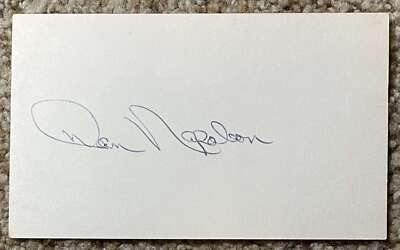 Dan Napoleon